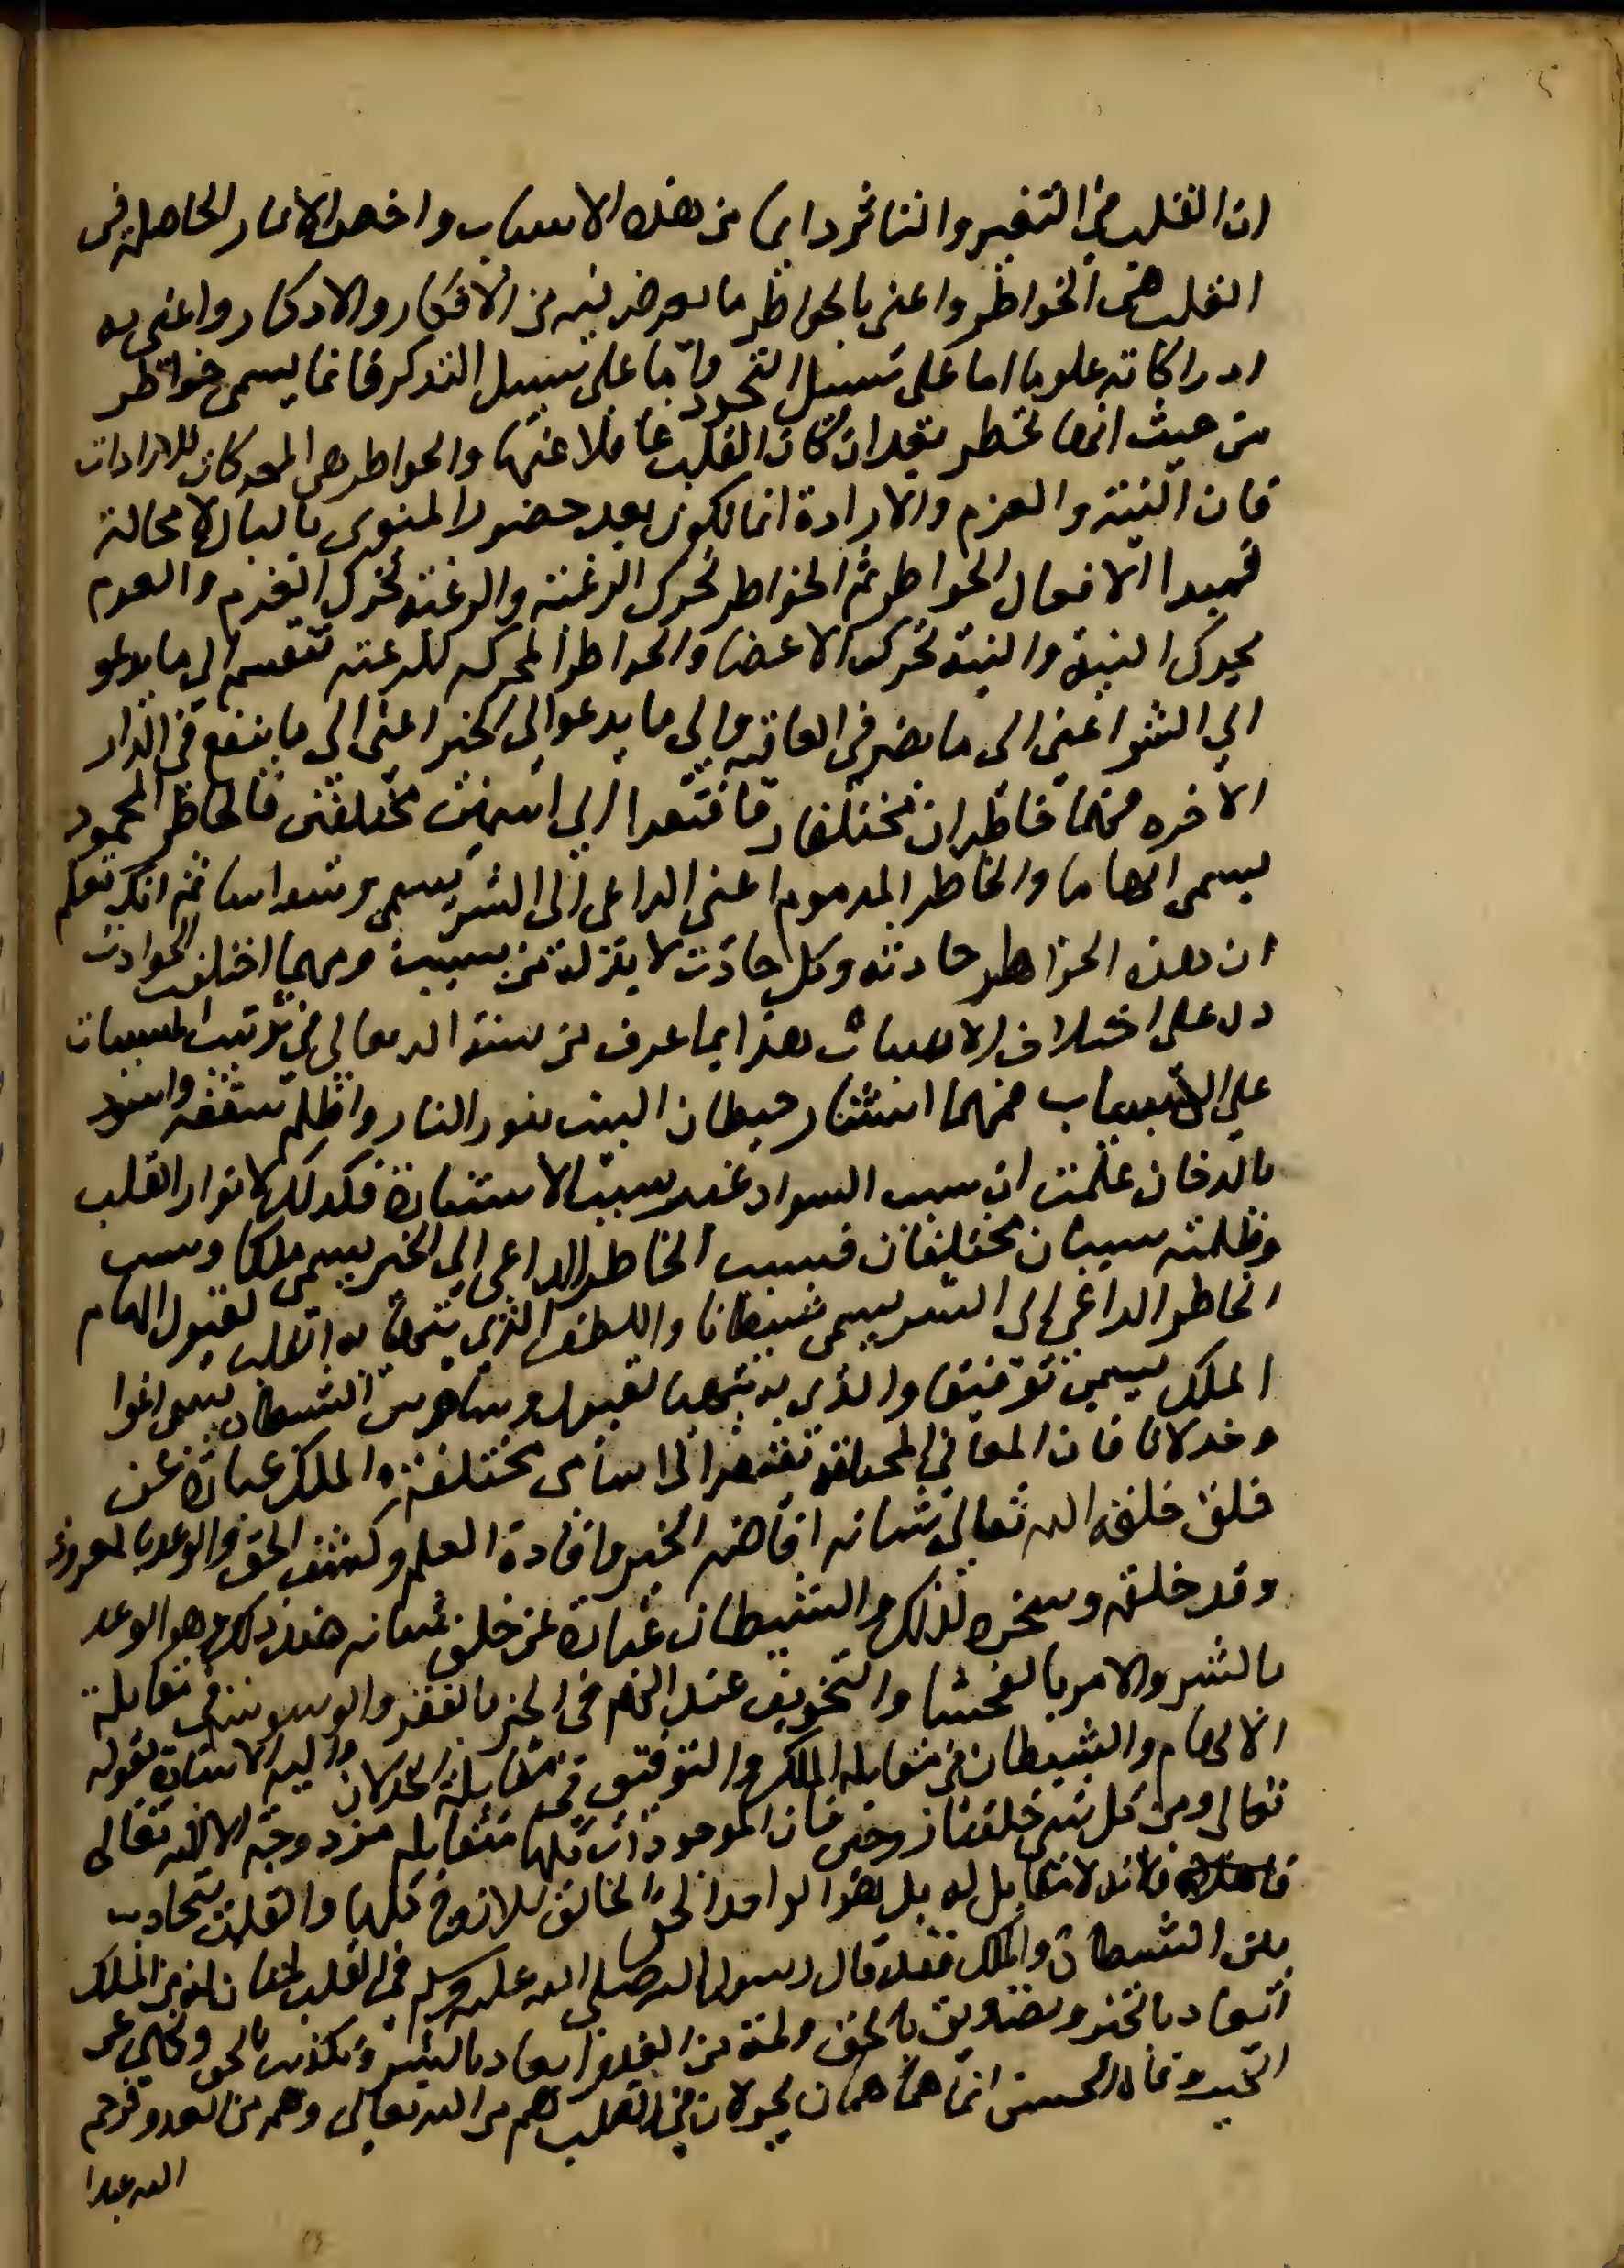 ان القلب في التغير والتاثر دايما من هذه الاسباب واخص الاثار الحاصلة في
القلب هي الخواطر واعنى بالخواطر ما يعرض فيه من الافكار والاذكار واعنى به
ادراكاته علوما اما على سبيل التجدد واما على سبيل التذكر فانما يسمى خواطر
من حيث انها تخطر بعد ان كان القلب غافلا عنها والخواطر هي المحركات للارادات
فان النية والعزم والارادة انما تكون بعد حضور المنوى بالبال لا محالة
فمبدا الافعال الخواطر ثم الخواطر تحرك الرغبة والرغبة تحرك العزم والعزم
يحرك النية والنية تحرك الاعضا والخواطر المحركه للرغبه تنقسم الى ما يدعو
الي الشر اعنى الى ما يضر في العاقبه والى ما يدعوا الى الخير اعنى الى ما ينفع في الدار
الاخره فهما خاطران مختلفان فافتقرا الي اسمين مختلفين فالخاطر المحمود
يسمى الهاما والخاطر المذموم اعنى الداعى الى الشر يسمى وسواسا ثم انك تعلم
ان هذه الخواطر حادثه وكل حادث لا بد له من سبب ومهما اختلف الحوادث
دل على اختلاف الاسباب هذا بما عرف من سنة الله تعالى في ترتيب المسببات
على الاسباب فمهما استنار حيطان البيت بنور النار واظلم سقفه واسود
بالدخان علمت ان سبب السواد غير سبب الاستنارة فكذلك لانوار القلب
وظلمته سببان مختلفان فسبب الخاطر الداعى الى الخير يسمى ملكا وسبب
الخاطر الداعي الى الشر يسمى شيطانا واللطف الذي يتهيا به القلب لقبول الهام
الملك يسمى توفيقا والذي به يتهيا لقبول وسواس الشيطان يسمى اغوا
وخذلانا فان المعاني المختلفة تفتقر الى اسامى مختلفة والملك عبارة عن
خلق خلقه الله تعالى شانه افاضه الخير وافادة العلم وكشف الحق والوعد بالمعروف
وقد خلقه وسخره لذلك والشيطان عبارة عن خلق شانه ضد ذلك وهو الوعد
بالشر والامر بالفحشا والتخويف عند الهم في الخير بالفقر والوسوسة في مقابلة
الالهام والشيطان في مقابله الملك والتوفيق في مقابلة الخذلان واليه الاشارة بقوله
تعالى ومن كل شي خلقنا زوجين فان الموجودات كلها متقابله مزدوجة الا الله تعالى
فانه لا مقابل له بل هو الواحد الحق الخالق للازواج كلها والقلب متجاذب
بين الشيطان والملك فقد قال رسول الله صلى الله عليه وسلم في القلب لمتان لمة من الملك
ايعاد بالخير وتصديق بالحق ولمة من العدو ايعاد بالشر وتكذيب بالحق ونهي عن
الخير وقال الحسن انما هما همان يجولان في القلب هم من الله تعالى وهم من العدو فرحم
الله عبدا